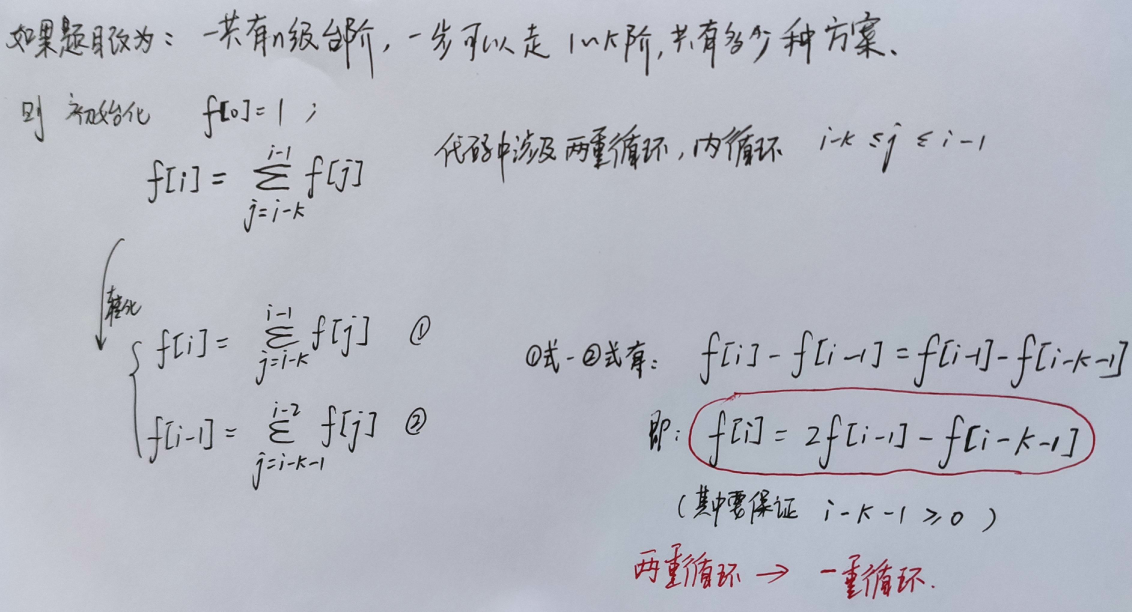 如果题目改为：一共有n级台阶，一步可以走 1~K阶，共有多少种方案、
则 初始化 f[0]=1；
f[i] = ∑_{j=i-K}^{i-1} f[j] 代码中涉及两重循环，内循环 i-K ≤ j ≤ i-1
转化
f[i] = ∑_{j=i-K}^{i-1} f[j] ①
f[i-1] = ∑_{j=i-K-1}^{i-2} f[j] ②
①式-②式有： f[i] - f[i-1] = f[i-1] - f[i-K-1]
即： f[i] = 2f[i-1] - f[i-K-1]
（其中要保证 i-K-1 ≥ 0）
两重循环 → 一重循环.